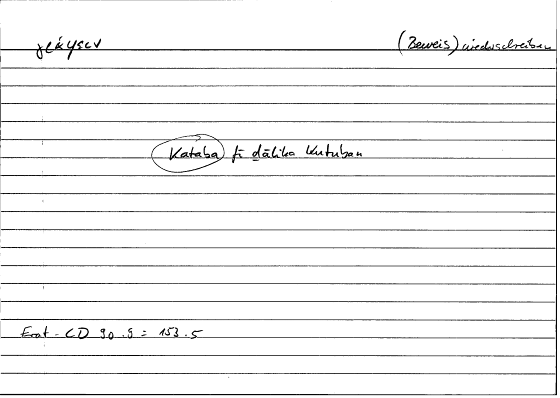 γράψειν (Beweis) niederschreiben
Kataba fī ḏālika kutuban
Erat-CD 90.9 = 153.5